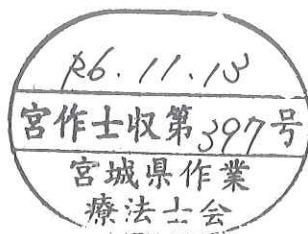 R6.11.13
宮作士収第397号
宮城県作業
療法士会